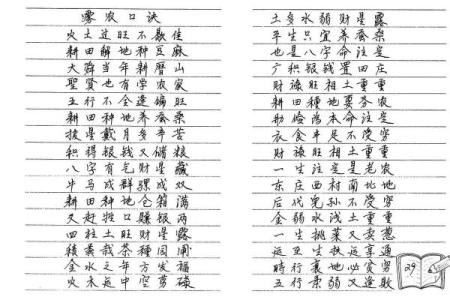 农口诀
火土过旺不歇佳
耕田解地种豆麻
大舜当年耕曆山
聖賢也有学农家
五行不全逢偏旺
耕田种地养蚕桑
披星戴月多辛苦
积得银钱又储粮
八字有气财星藏
牛马成群骡成双
耕田种地仓箱满
又赶牲口賺银两
四柱土旺财星露
栽養栽茶種园圃
金水之年方发福
火木运中空劳碌
土多水弱财星露
平生只宜养蚕桑
也是八字命注定
广积银钱置田庄
财禄旺相土重重
耕田種地要务农
命注定
衣食半足不受穷
财禄旺相土重重
一生注定是老农
东庄西村南北地
后代児孙不受穷
金弱水浅土重重
一生挑葉又卖葱
运至生铁运享通
時行衰地必贫穷
时行劳弱又逢敗
29